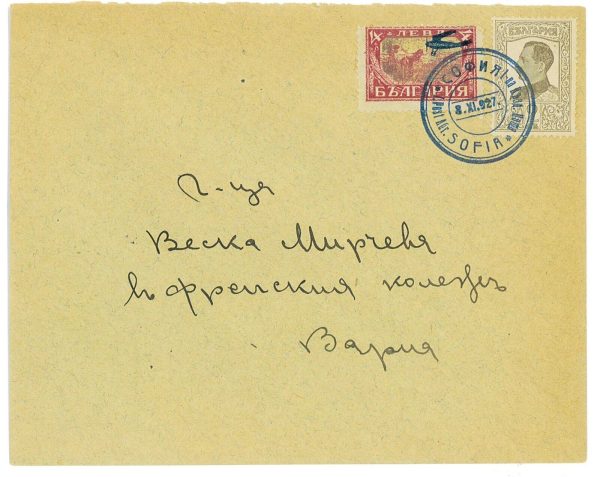 ЛЕВА
БЪЛГАРИЯ
БЪЛГАРИЯ
СОФИЯ
8.XI.927.
SOFIA
Г-ца
Веска Мирчева
въ френския колежъ
Варна